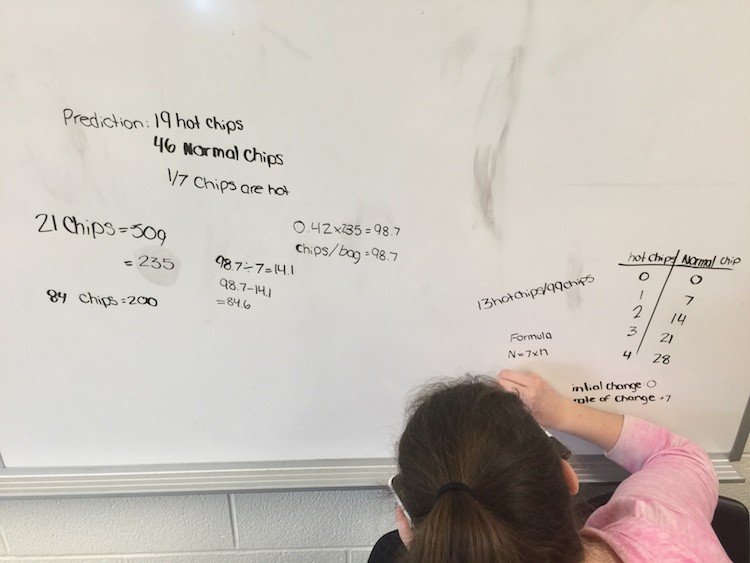 Prediction: 19 hot chips
46 Normal chips
1/7 Chips are hot
21 Chips = 50g
= 235
84 Chips = 200
0.42x235 = 98.7
Chips/bag = 98.7
98.7÷7=14.1
98.7-14.1
=84.6
13hotchips/99chips
Formula
N=7xn
hot chips Normal chip
0 0
1 7
2 14
3 21
4 28
initial change: 0
rate of change +7